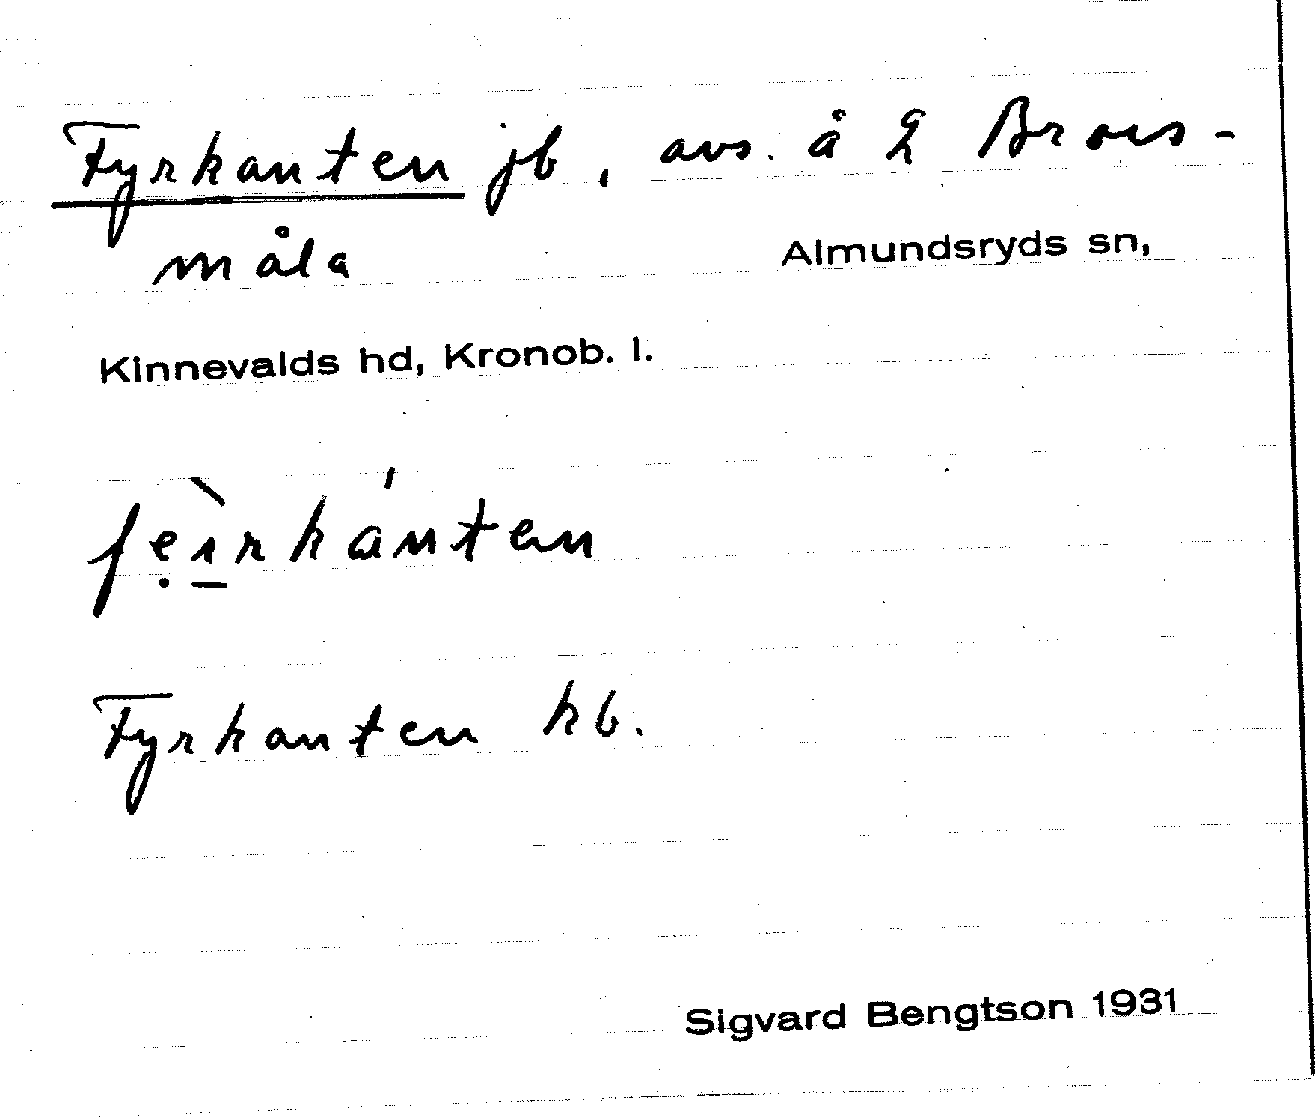 Fyrkanten jb, avs. å 2 Brors-
måla
Almundsryds sn,
Kinnevalds hd, Kronob. l.
Fyrkanten kb.
Sigvard Bengtson 1931